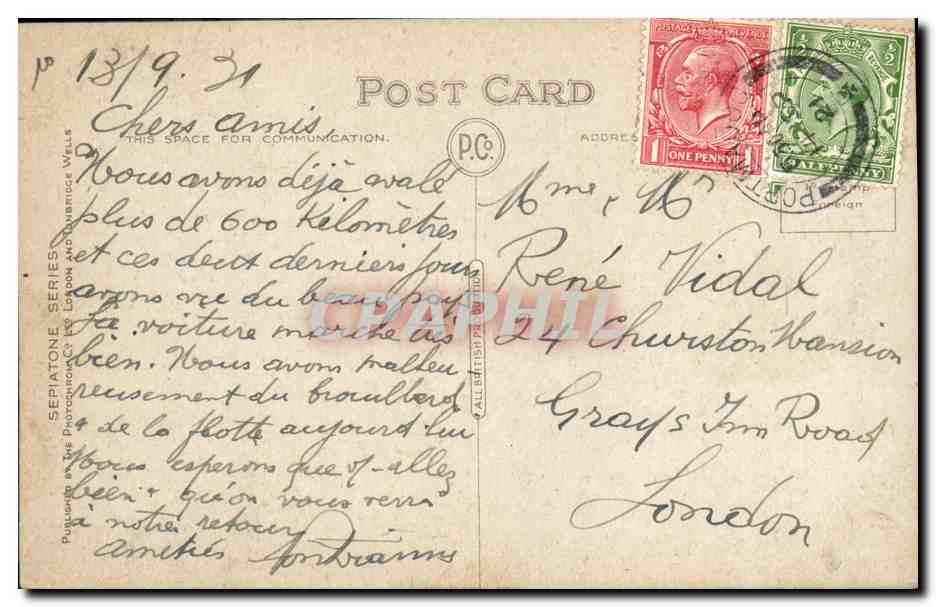 13/9.31
POST CARD
Chers amis,
THIS SPACE FOR COMMUNICATION.
ADDRES
P.Co.
Nous avons déjà avalé
plus de 600 Kilomètres
et ces deux derniers jours
avons vu du beau pay
La voiture marche
bien. Nous avons malheu
reusement du brouillard
+ de la flotte aujourd'hui
Nous esperons que allez
bien + qu'on vous verra
à notre retour
Amitiés
Mme, Mr
René Vidal
24 Churston Mansion
Grays Inn Road
London
SEPIATONE SERIES
PUBLISHED BY THE PHOTOCHROM CO. LTD. LONDON AND TUNBRIDGE WELLS
ALL BRITISH PRODUCTION
POSTAGE REVENUE
1 ONE PENNY 1
½ ½
HALFPENNY
PORTM
foreign
CPAPHIL